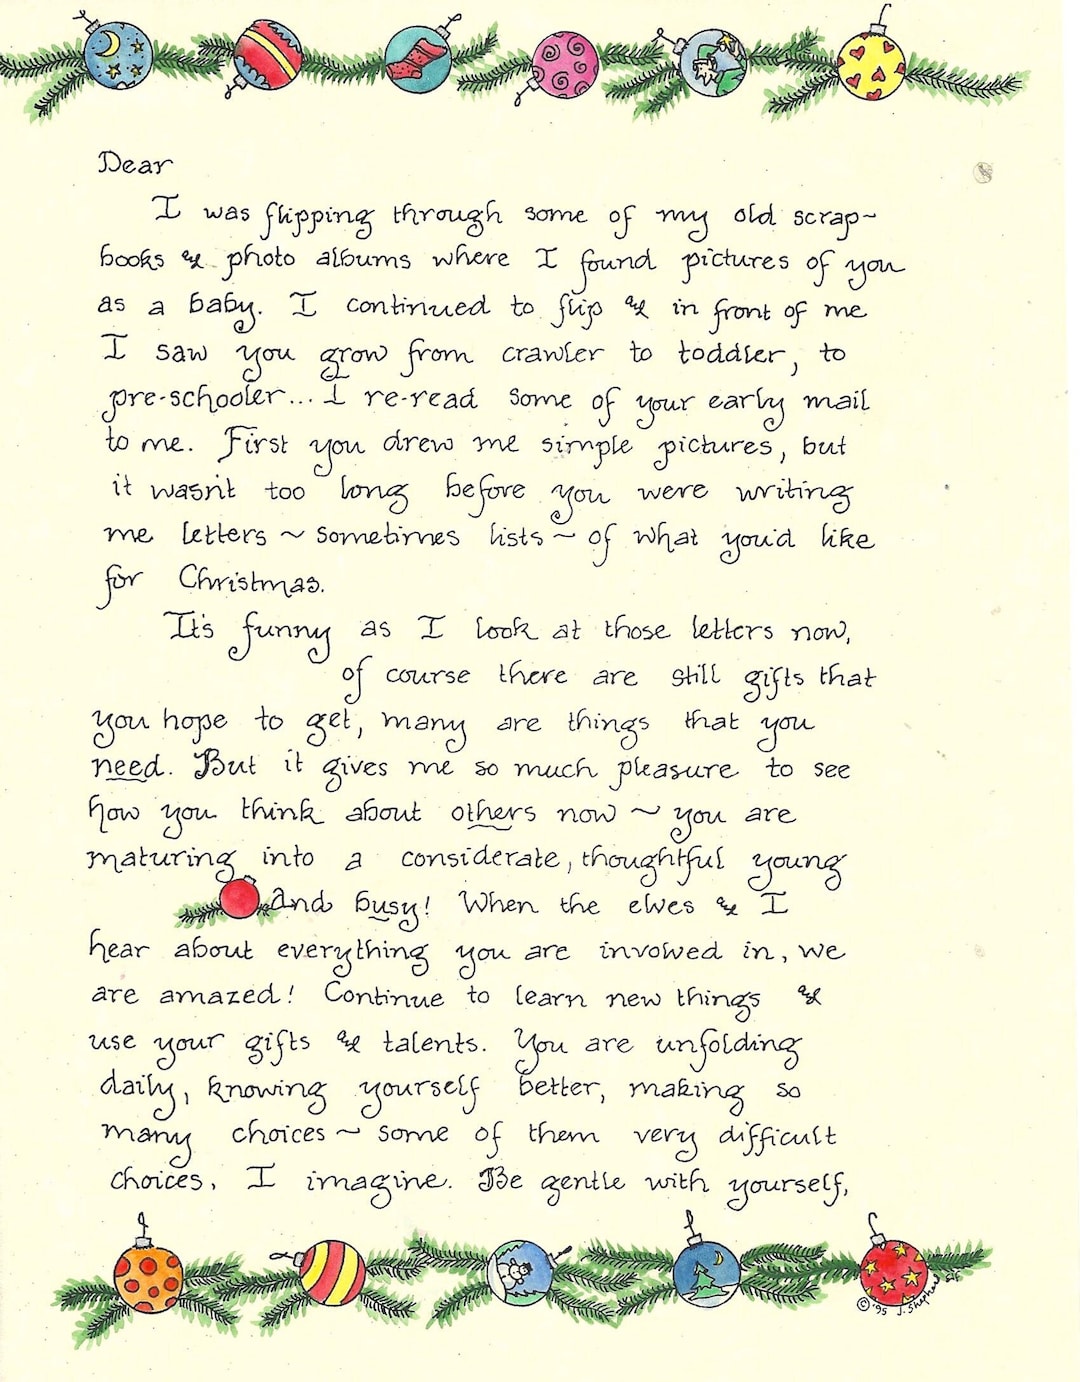 Dear
I was flipping through some of my old scrap~
books & photo albums where I found pictures of you
as a baby. I continued to flip & in front of me
I saw you grow from crawler to toddler, to
pre-schooler... I re-read some of your early mail
to me. First you drew me simple pictures, but
it wasn't too long before you were writing
me letters ~ sometimes lists ~ of what you'd like
for Christmas.
It's funny as I look at those letters now,
of course there are still gifts that
you hope to get, many are things that you
need. But it gives me so much pleasure to see
how you think about others now ~ you are
maturing into a considerate, thoughtful young
and busy! When the elves & I
hear about everything you are involved in, we
are amazed! Continue to learn new things &
use your gifts & talents. You are unfolding
daily, knowing yourself better, making so
many choices ~ some of them very difficult
choices, I imagine. Be gentle with yourself,
© '95 J. Shephard